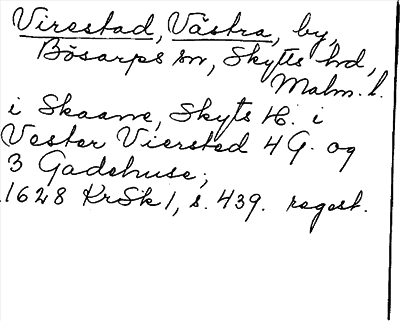 Virestad, Västra, by,
Bösarps sn, Skytts hd,
Malm. l.
i Skaane, Skyts H. i
Vester Viersted 4 G. og
3 Gadehuse;
1628 KrSk 1, s. 439. regest.